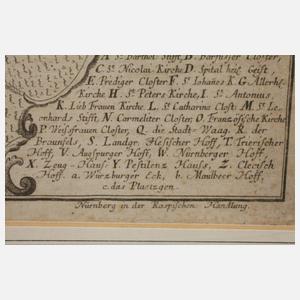 A St. Barthol. Stifft, B. Barfusser Closter,
C. St. Nicolai Kirche D. Spital heil. Geist,
E. Prediger Closter F. St. Iohañes K. G. Allerh.
Kirche H. St. Peters Kirche, I. St. Antonius,
K. Lieb Frauen Kirche L. St. Catharina Clost. M. St. Le-
onhards Stifft, N. Carmeliter Closter, O. Französische Kirche
P. Weisfrauen Closter, Q. die Stadt-Waag. R. der
Braunfels, S. Landgr. Hesischer Hoff, T. Trierischer
Hoff, V. Augspurger Hoff, W. Nürnberger Hoff,
X. Zeug-Hauß Y. Pestilenz Hauss, Z. Clevisch
Hoff. a. Würzburger Eck, b. Maulbeer Hoff,
c. das Plaezgen.
Nürnberg in der Raspischen Handlung.